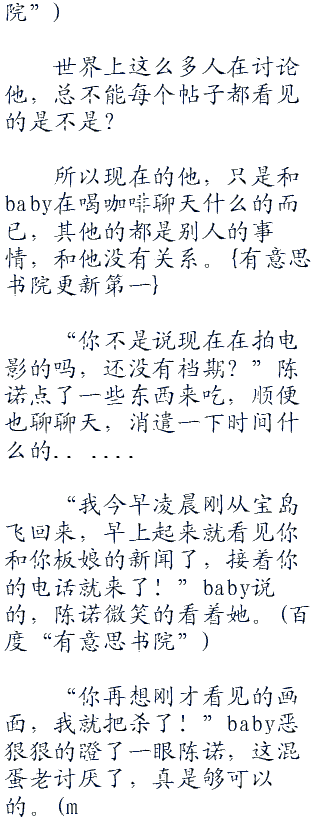 院”)
世界上这么多人在讨论
他，总不能每个帖子都看见
的是不是？
所以现在的他，只是和
baby在喝咖啡聊天什么的而
已，其他的都是别人的事
情，和他没有关系。{有意思
书院更新第一}
“你不是说现在在拍电
影的吗，还没有档期？”陈
诺点了一些东西来吃，顺便
也聊聊天，消遣一下时间什
么的.. ....
“我今早凌晨刚从宝岛
飞回来，早上起来就看见你
和你板娘的新闻了，接着你
的电话就来了！”baby说
的，陈诺微笑的看着她。(百
度“有意思书院”)
“你再想刚才看见的画
面，我就把杀了！”baby恶
狠狠的瞪了一眼陈诺，这混
蛋老讨厌了，真是够可以
的。(m